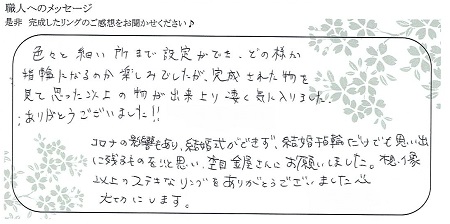 職人へのメッセージ
是非 完成したリングのご感想をお聞かせください♪
色々と細い所まで設定ができ、どの様な
指輪になるのか楽しみでしたが、完成された物を
見て思った以上の物が出来上り凄く気に入りました。
ありがとうございました!!
コロナの影響もあり、結婚式ができず、結婚指輪だけでも思い出
に残るものを…と思い、杢目金屋さんにお願いしました。想像
以上のステキなリングをありがとうございました
大切にします。